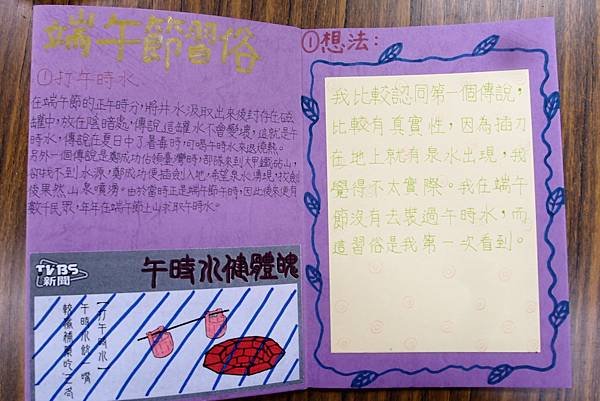 端午節習俗
①打午時水
在端午節的正午時分,將井水汲取出來後封存在磁
罐中,放在陰暗處,傳說這罐水不會變壞,這就是午
時水,傳說在夏日中了暑毒時,可喝午時水來退燒熱。
另外一個傳說是鄭成功佔領臺灣時,部隊來到大甲鐵砧山,
卻找不到水源,鄭成功便插劍入地,希望泉水湧現,拔劍
後果然山泉噴湧。由於當時正是端午節午時,因此後來便有
數千民眾,年年在端午節上山求取午時水。
TVBS
新聞
午時水健體魄
【打午時水】
午時水飲一嘴
較補藥吃三
①想法:
我比較認同第一個傳說,
比較有真實性,因為插刀
在地上就有泉水出現,我
覺得不太實際。我在端午
節沒有去裝過午時水,而
這習俗是我第一次看到。